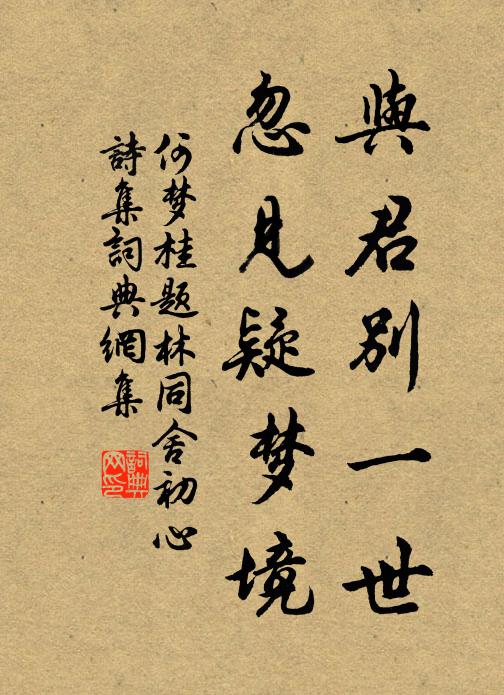 與君别一世
忽見疑梦境
何梦桂題林同舍初心
詩集詞典網集
詞典网印